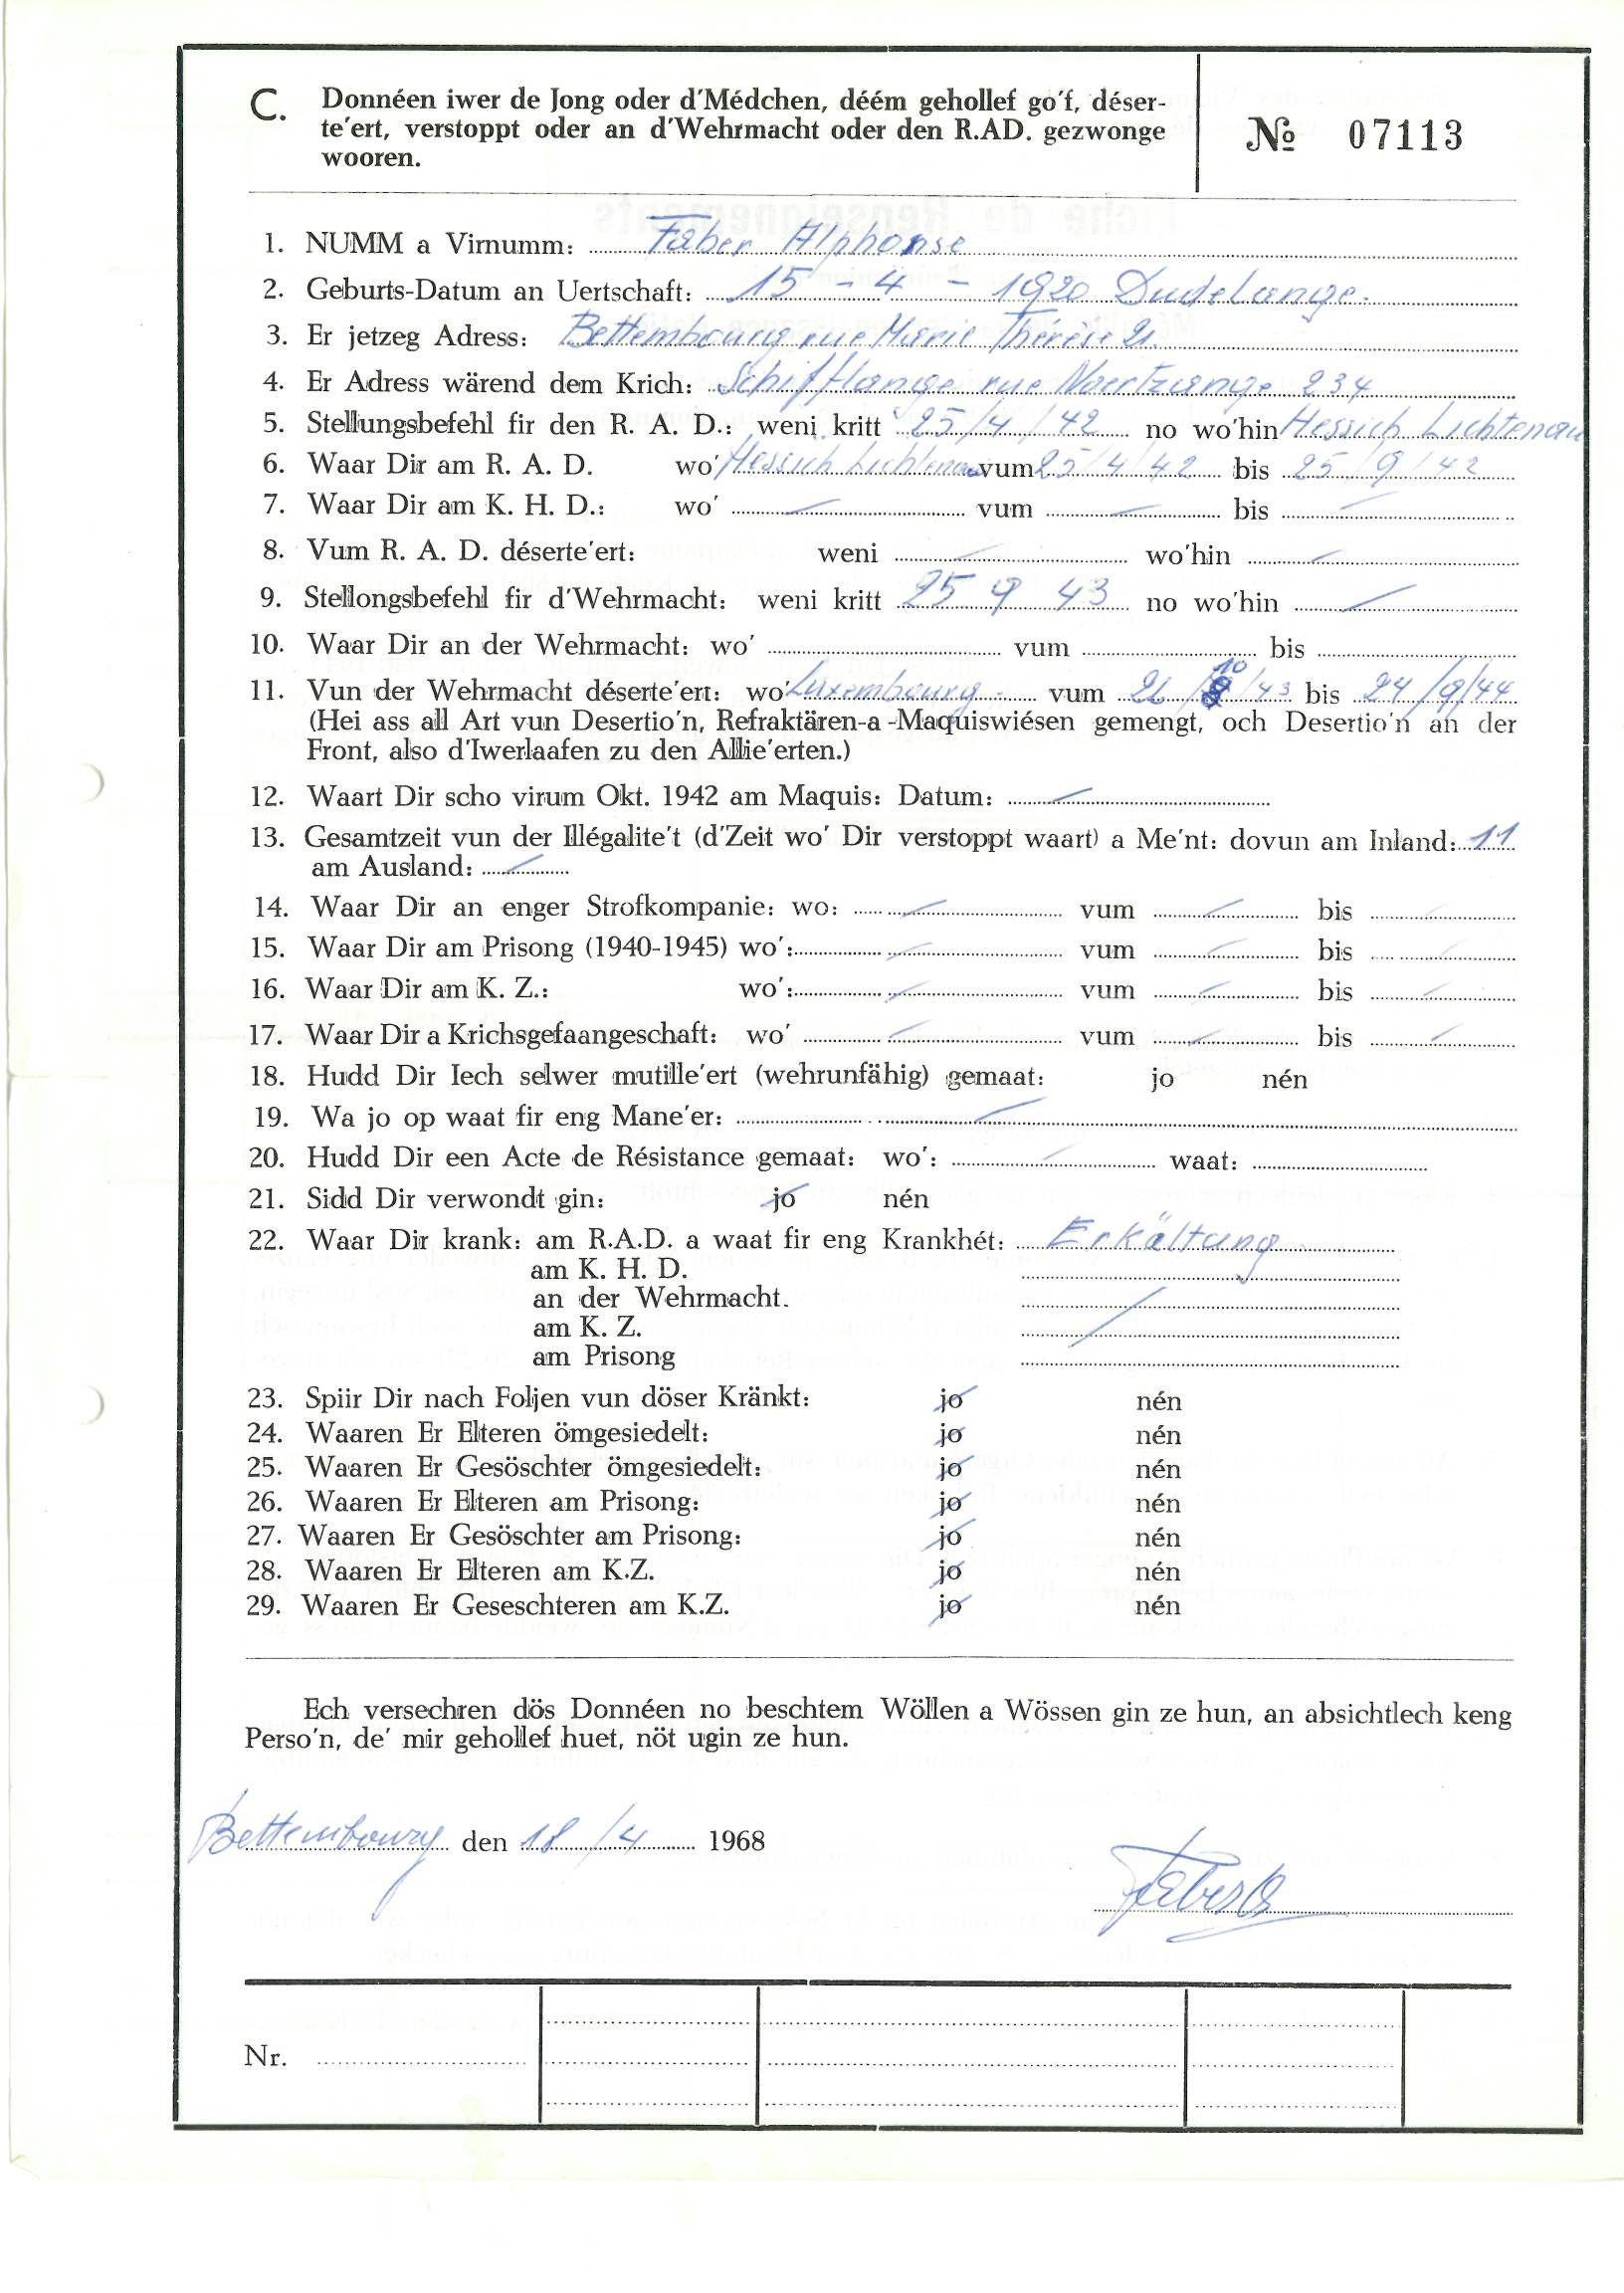 C. Donnéen iwer de Jong oder d'Médchen, déém gehollef go'f, déser-
te'ert, verstoppt oder an d'Wehrmacht oder den R.AD. gezwonge
wooren.
№ 07113
1. NUMM a Virnumm: Faber Alphonse
2. Geburts-Datum an Uertschaft: 15 - 4 - 1920 Dudelange.
3. Er jetzeg Adress: Bettembourg rue Marie Thérèse 21
4. Er Adress wärend dem Krich: Schifflange rue Noertzange 234
5. Stellungsbefehl fir den R. A. D.: weni kritt 25/4/42 no wo'hin Hessich Lichtenau
6. Waar Dir am R. A. D. wo' Hessich Lichtenau vum 25/4/42 bis 25/9/42
7. Waar Dir am K. H. D.: wo' — vum — bis —
8. Vum R. A. D. déserte'ert: weni — wo'hin —
9. Stellongsbefehl fir d'Wehrmacht: weni kritt 25 9 43 no wo'hin —
10. Waar Dir an der Wehrmacht: wo' vum bis
11. Vun der Wehrmacht déserte'ert: wo' Luxembourg. vum 26/10/43 bis 24/9/44
(Hei ass all Art vun Desertio'n, Refraktären-a-Maquiswiésen gemengt, och Desertio'n an der
Front, also d'Iwerlaafen zu den Allie'erten.)
12. Waart Dir scho virum Okt. 1942 am Maquis: Datum: —
13. Gesamtzeit vun der Illégalite't (d'Zeit wo' Dir verstoppt waart) a Me'nt: dovun am Inland: 11
am Ausland: —
14. Waar Dir an enger Strofkompanie: wo: — vum — bis —
15. Waar Dir am Prisong (1940-1945) wo': — vum — bis —
16. Waar Dir am K. Z.: wo': — vum — bis —
17. Waar Dir a Krichsgefaangeschaft: wo' — vum — bis —
18. Hudd Dir Iech selwer mutille'ert (wehrunfähig) gemaat: jo nén
19. Wa jo op waat fir eng Mane'er: —
20. Hudd Dir een Acte de Résistance gemaat: wo': — waat:
21. Sidd Dir verwondt gin: jo nén
22. Waar Dir krank: am R.A.D. a waat fir eng Krankhét: Erkältung
am K. H. D.
an der Wehrmacht.
am K. Z.
am Prisong
23. Spiir Dir nach Foljen vun döser Kränkt: jo nén
24. Waaren Er Elteren ömgesiedelt: jo nén
25. Waaren Er Gesöschter ömgesiedelt: jo nén
26. Waaren Er Elteren am Prisong: jo nén
27. Waaren Er Gesöschter am Prisong: jo nén
28. Waaren Er Elteren am K.Z. jo nén
29. Waaren Er Geseschteren am K.Z. jo nén
Ech versechren dös Donnéen no beschtem Wöllen a Wössen gin ze hun, an absichtlech keng
Perso'n, de' mir gehollef huet, nöt ugin ze hun.
Bettembourg den 18/4 1968
Nr.